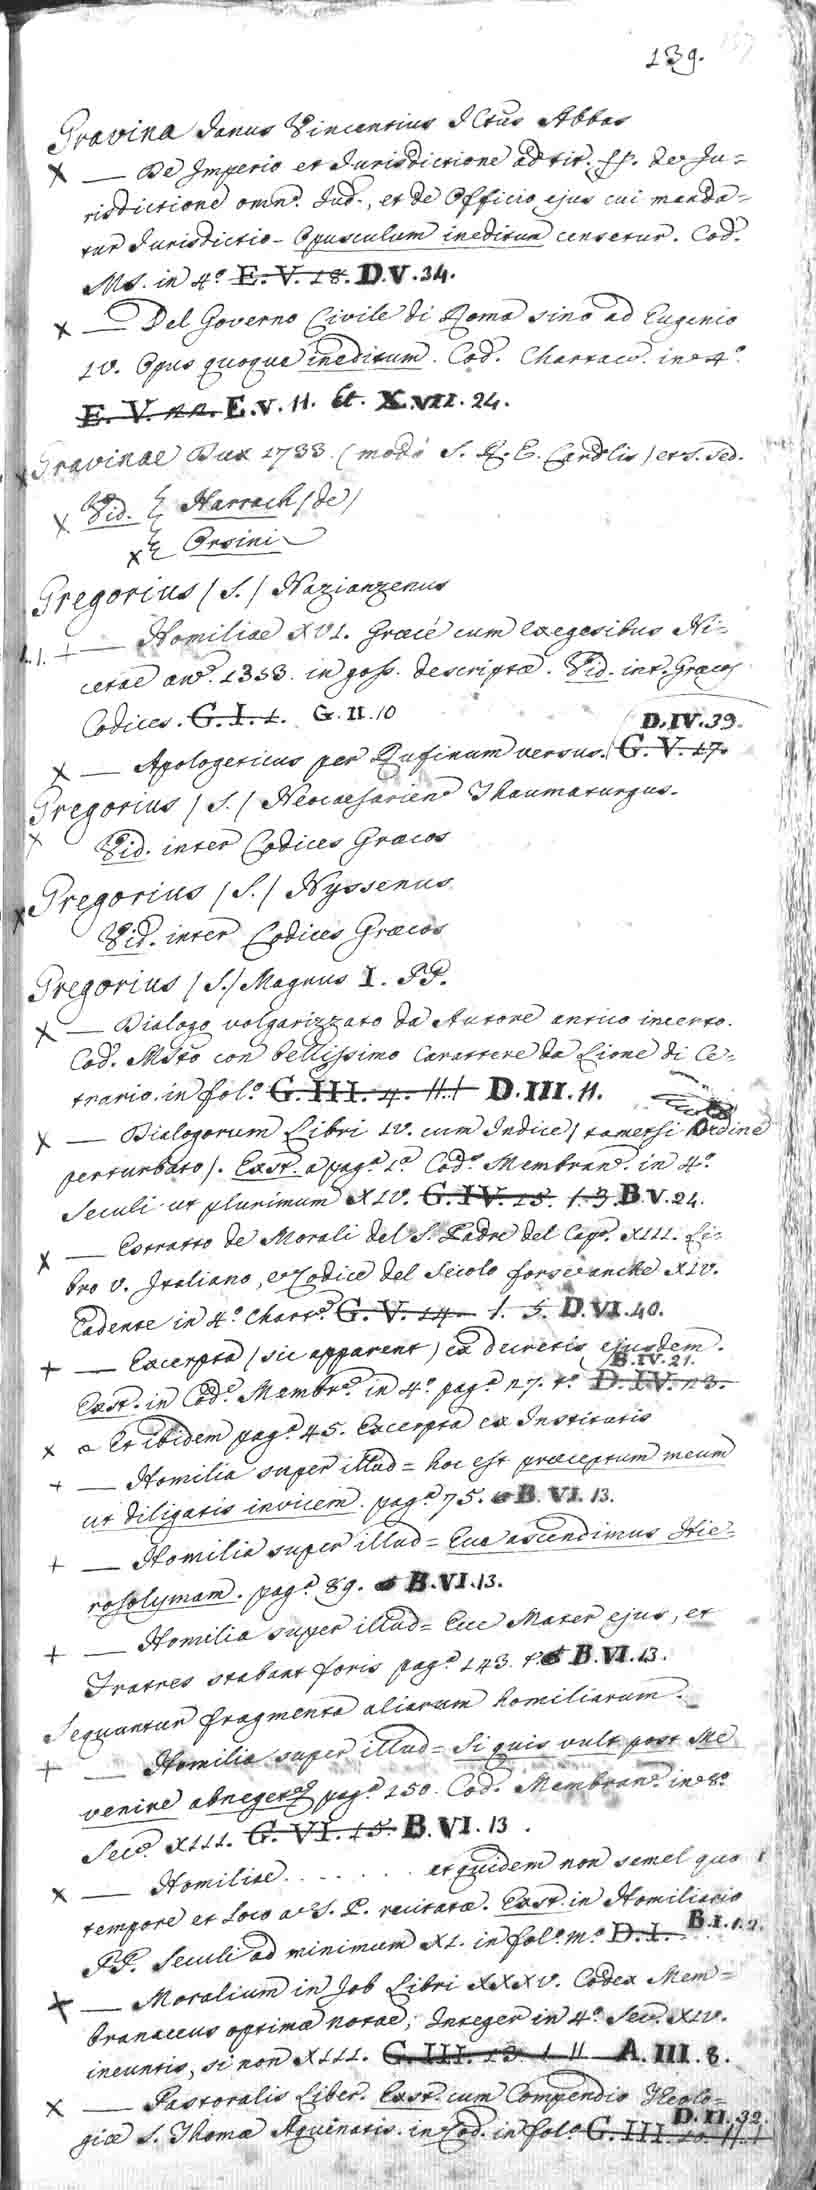 139.
Gravina Janus Vincentius JCtus Abbas
X — De Imperio et Jurisdictione ad tit. ff. de Ju=
risdictione omn. Jud., et de Officio ejus cui manda=
tur Jurisdictio - Opusculum ineditum censetur. Cod.
MS. in 4º E. V. 18. D.V.34.
X — Del Governo Civile di Roma sino ad Eugenio
IV. Opus quoque ineditum. Cod. Chartac. in 4º.
E. V. 22. E.V.11. et X.VII.24.
X Gravinae Dux 1733 (modo S. R. E. Cardlis) et S. Sed.
X Vid. { Harrach (de)
X { Orsini
Gregorius (S.) Nazianzenus
+ — Homiliae XVI. Graecè cum exegesibus Ni=
cetae anº 1353. in goss. descriptae. Vid. int. Graecos
Codices. G. I. 1. G.II.10
D.IV.39.
X — Apologeticus per Rufinum versus. G. V. 17.
Gregorius (S.) Neocaesarien. Thaumaturgus.
X Vid. inter Codices Graecos
X Gregorius (S.) Nyssenus
Vid. inter Codices Graecos
Gregorius (S.) Magnus I. PP.
X — Dialogo volgarizzato da Autore antico incerto.
Cod. MSto con bellissimo carattere da Lione di Ce=
trario in folº G. III. 4. D.III.11.
X — Dialogorum Libri IV. cum Indice (tametsi Ordine
perturbato). Exst. a pagª 1ª Codº Membranº in 4º
Seculi ut plurimum XIV. G. IV. 15. 1.3. B V.24.
X — Estratto de Morali del S. Padre del Capº XIII. Li=
bro V. Italiano, e Codice del Secolo forse anche XIV.
Cadente in 4º Chartº G. V. 14. 1. 5. D.VI.40.
+ — Excerpta (sic apparent) ex decretis ejusdem.
B.IV.21.
Exst. in Codº Membrº in 4º pagª 27. tº D. IV. 23.
X Et ibidem pagª 45. Excerpta ex Institutis
+ — Homilia super illud = hoc est praeceptum meum
ut diligatis invicem. pagª 75. B.VI.13.
+ — Homilia super illud = Ecce ascendimus Hie=
rosolymam. pagª 89. B.VI.13.
+ — Homilia super illud = Ecce Mater ejus, et
Fratres stabant foris pagª 143. tº B.VI.13.
Sequuntur fragmenta aliarum homiliarum.
+ — Homilia super illud = Si quis vult post Me
venire abneget pagª 150. Codº Membranº in 8º
Secº XIII. G. VI. 15. B.VI.13.
X — Homiliae . . . . . . . et quidem non semel quo
tempore et Loco a S. P. recitatae. Exst. in Homiliario
PP. Seculi ad minimum XI. in folº mº D. I. B.I.1.2.
X — Moralium in Job Libri XXXV. Codex Mem=
branaceus optimae notae, Integer in 4º Secº XIV.
ineuntis, si non XIII. G. III. 13 1 11 A.III.8.
X — Pastoralis Liber. Exst. cum Compendio Theolo=
D.II.32.
giae S. Thomae Aquinatis in Cod. in folº G. III. 10.